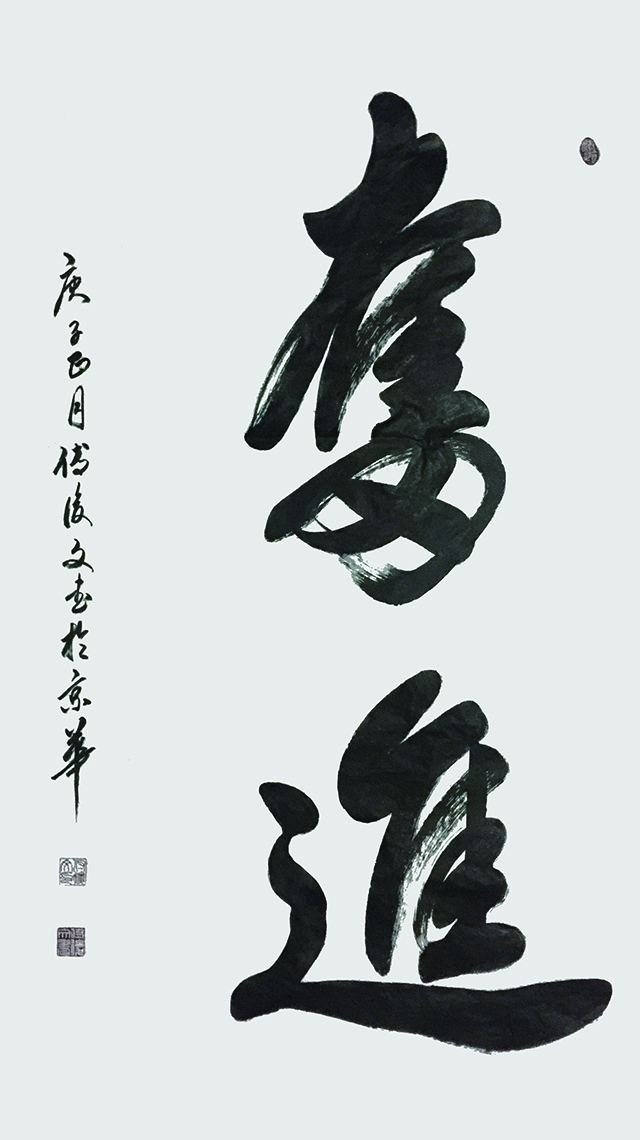 奮進
庚子正月傅俊文書於京華